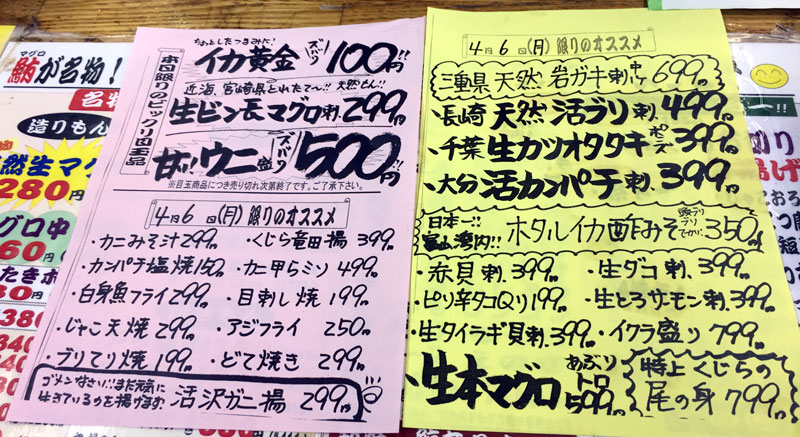 マグロ
鮪が名物!
名物
造りもん
然生マグ
280円
グロ中
60円
たきポ
80円
380
340
ちょっとしたつまみに!
イカ黄金 ズバリ 100円!!
本日限りのビックリ目玉品
近海、宮崎県とれたて〜!! 天然もん!!
生ビン長マグロ刺、299円
甘い!!ウニ盛 ズバリ 500円!!
※目玉商品につき売り切れ次第終了です。ご了承下さい。
4月6日(月)限りのオススメ
・カニみそ汁299円
・くじら竜田揚 399円
・カンパチ塩焼150円
・カニ甲らミソ 499円
・白身魚フライ299円
・目刺し焼 199円
・じゃこ天焼 299円
・アジフライ 250円
・ブリてり焼 199円
・どて焼き 299円
ゴメンなさい!!まだ元気に
生きているのを揚げます。
活沢ガニ揚 299円
4月6日(月)限りのオススメ
三重県 天然 岩ガキ刺、中ケ699円
、長崎 天然 活ブリ刺、499円
、千葉 生カツオタタキ ポンズ 399円
、大分 活カンパチ刺、399円
日本一!!
富山湾内!!
ホタルイカ酢みそ
350円
・赤貝刺、399円
・生ダコ刺、399円
・ピリ辛タコQり199円
・生とろサーモン刺、399円
・生タイラギ貝刺、399円
・イクラ盛り 799円
、生本マグロ
あぶりトロ
599円
特上くじらの
尾の身 799円